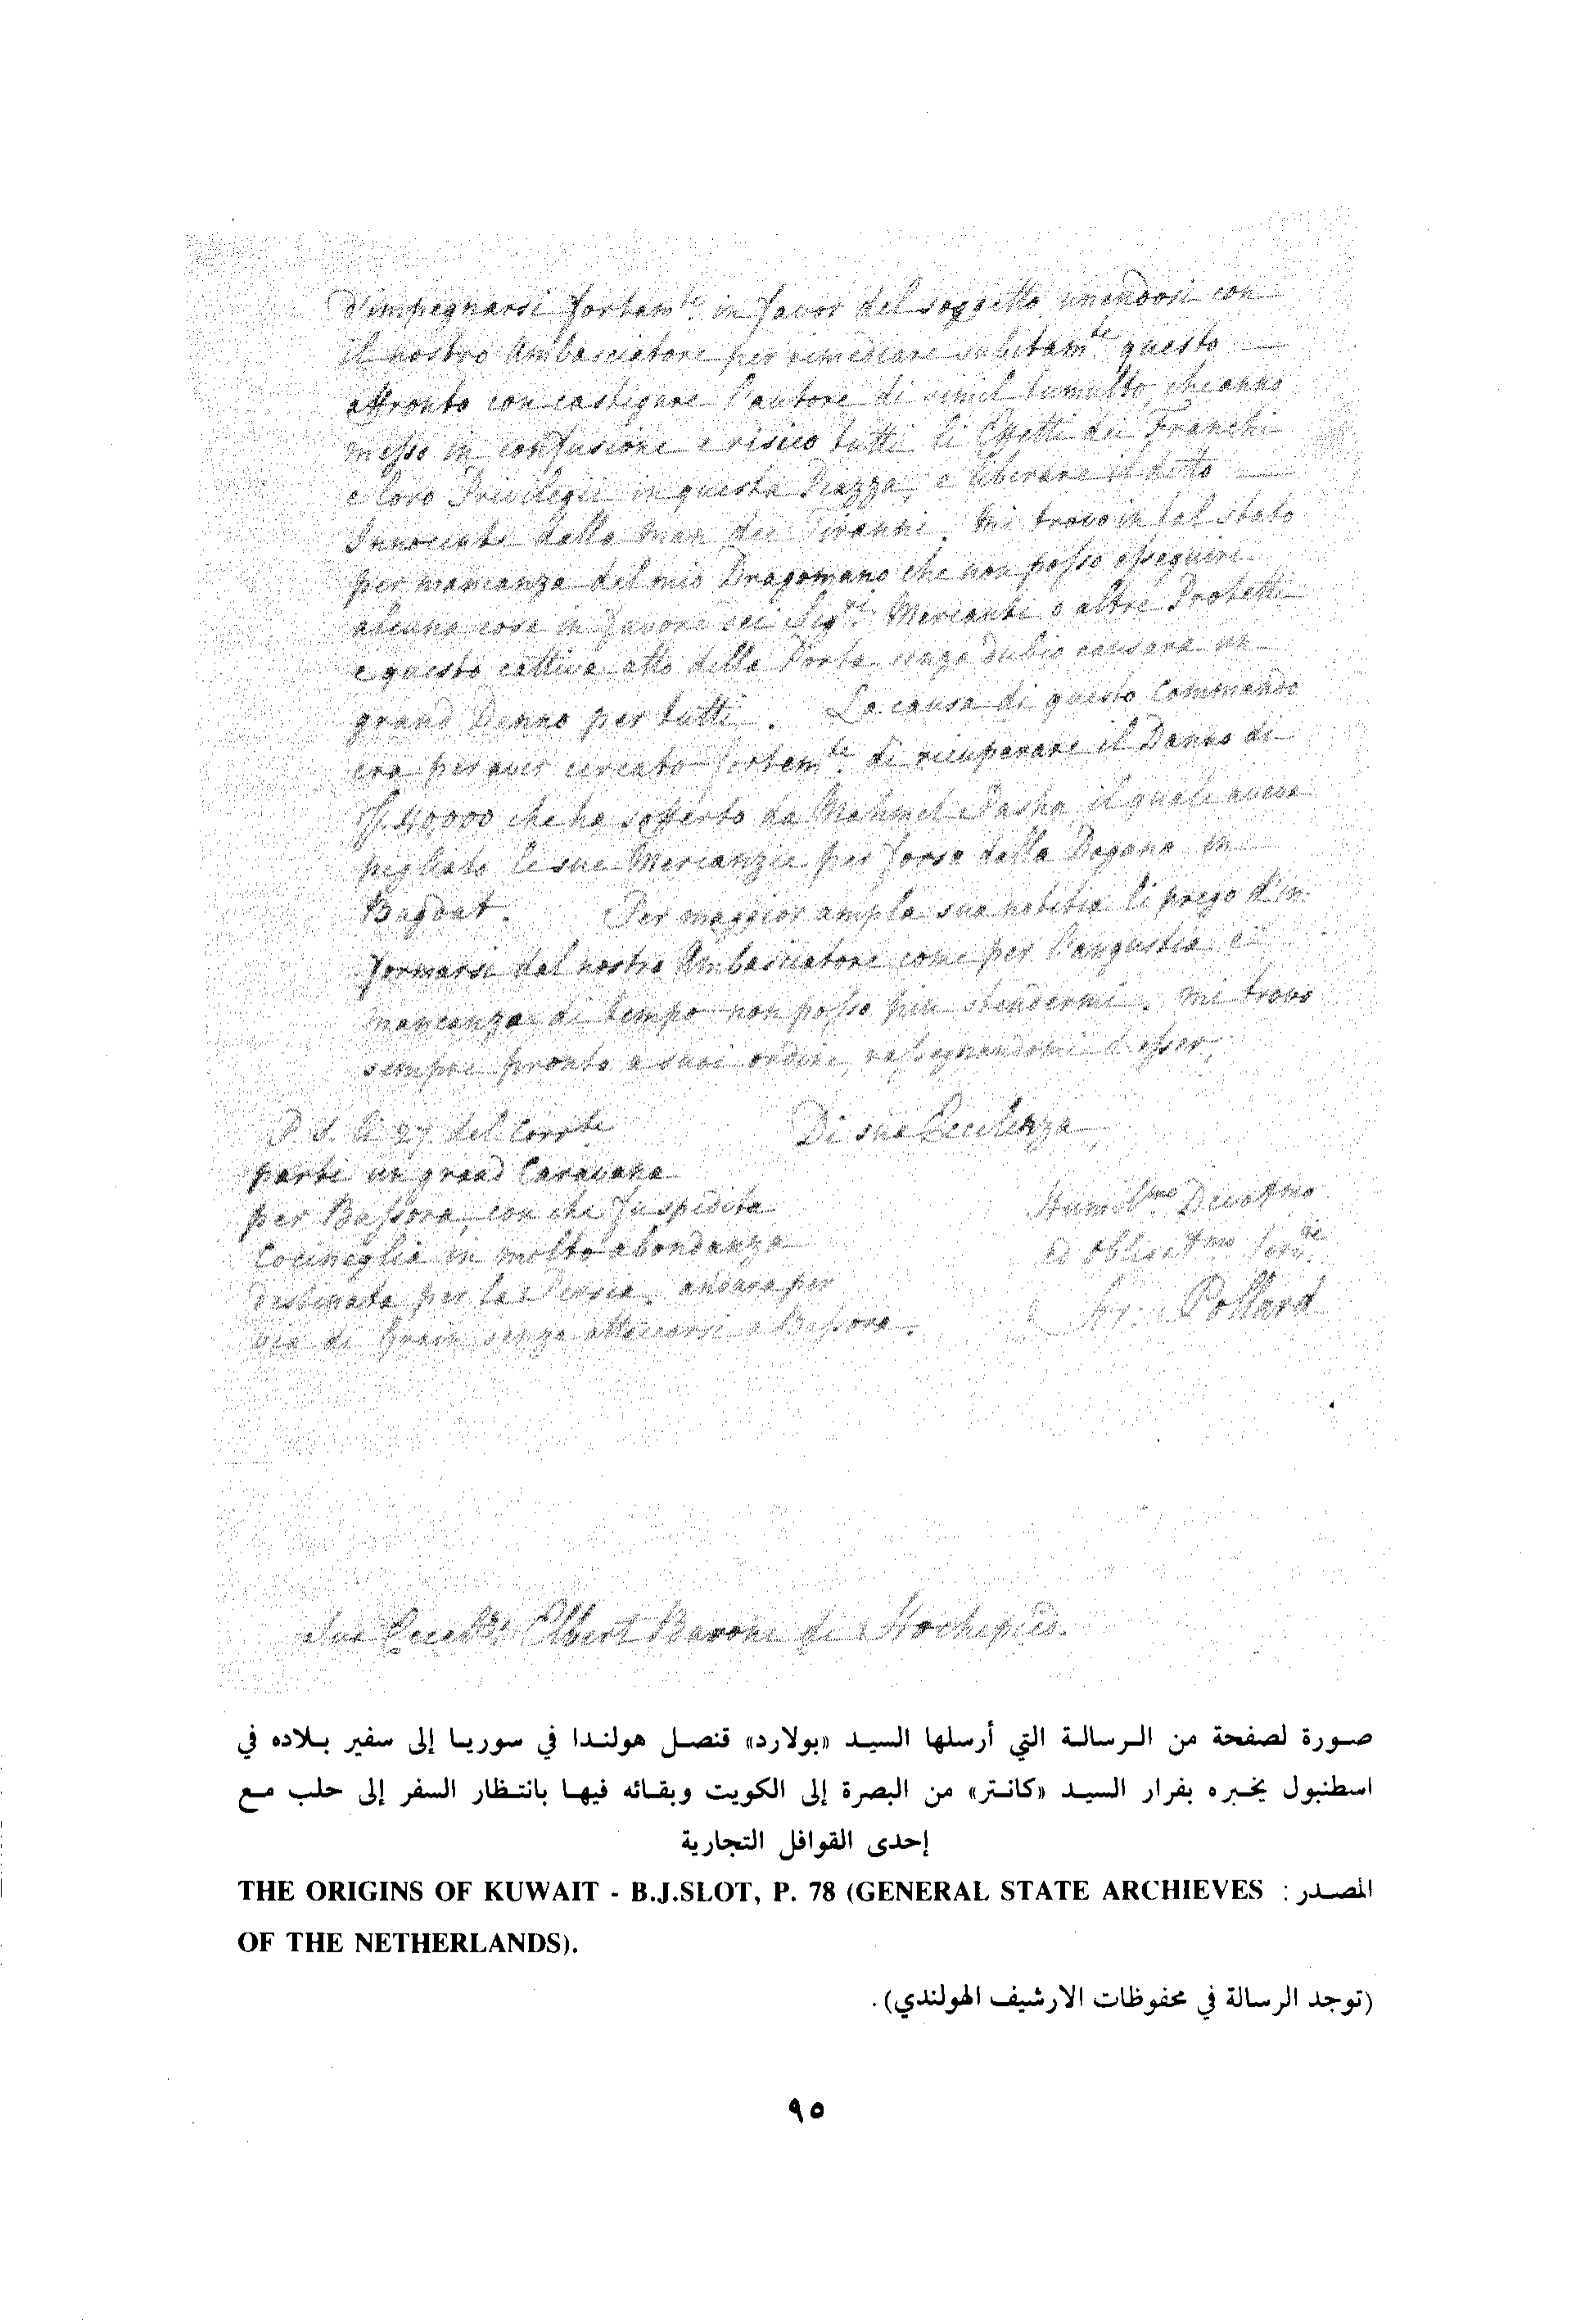 d'impegnarsi fortamte. in favor del soggetto unendosi con
il nostro Ambasciatore per rimediare subitamte. questo
affronto con castigare l'autore di simil tumulto, che anno
messo in confusione e risico tutti li Effetti dei Franchi
e loro Privilegii in questa Piazza, e liberare il ditto
Innocente dalla man dei Tiranni. Mi trovo in tal stato
per mancanza del mio Dragomano che non posso esseguire
alcuna cosa in favore dei Sigri. Mercanti o altri Protetti
e questo cattivo atto della Porta senza dubio causara un
grand Danno per tutti. La causa di questo Commando
era per aver cercato fortamte. di ricuperare il Danno di
40,000 che ha sofferto da Mahmet Pasha il quale aveva
pigliato le sue Mercanzie per forza dalla Dogana in
Bagdat. Per maggior ampla sua notitia li prego d'in-
formarsi dal nostro Ambasciatore come per l'angustia e
mancanza di tempo non posso piu stendermi. Mi trovo
sempre pronto a suoi ordini, rassegnandomi d'esser,
P. S. li 27 del Corrte. Di sua Eccelenza
parti un grand Caravana
per Bassora, con che fu spedita Humilmo Devotmo
Cocineglia in molto abondanza ed obligatmo
destinata per la Persia. andara per
via di Grain senza attoccarsi a Bassora. Pollard
Sua Elbert Barone di Hochepied.
صورة لصفحة من الرسالة التي أرسلها السيد «بولارد» قنصل هولندا في سوريا إلى سفير بلاده في
اسطنبول يخبره بفرار السيد «كانتر» من البصرة إلى الكويت وبقائه فيها بانتظار السفر إلى حلب مع
إحدى القوافل التجارية
المصدر : THE ORIGINS OF KUWAIT - B.J.SLOT, P. 78 (GENERAL STATE ARCHIEVES
OF THE NETHERLANDS).
(توجد الرسالة في محفوظات الارشيف الهولندي).
٩٥